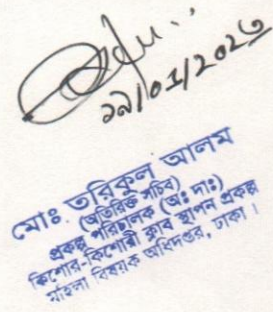 ১৯/০১/২০২৩
মোঃ তরিকুল আলম
(অতিরিক্ত সচিব)
প্রকল্প পরিচালক (অঃ দাঃ)
কিশোর-কিশোরী ক্লাব স্থাপন প্রকল্প
মহিলা বিষয়ক অধিদপ্তর, ঢাকা।